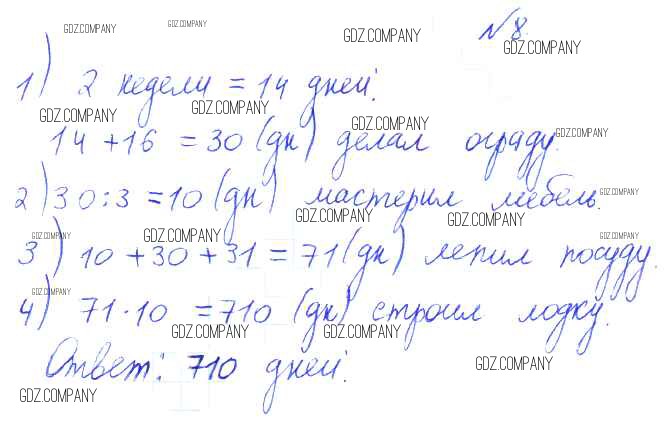 GDZ.COMPANY GDZ.COMPANY GDZ.COMPANY №8.
GDZ.COMPANY
1) 2 недели = 14 дней.
GDZ.COMPANY GDZ.COMPANY GDZ.COMPANY
14 + 16 = 30 (дн) делал ограду. GDZ.COMPANY
2) 30 : 3 = 10 (дн) мастерил мебель. GDZ.COMPANY
GDZ.COMPANY GDZ.COMPANY
GDZ.COMPANY GDZ.COMPANY GDZ.COMPANY
3) 10 + 30 + 31 = 71 (дн) лепил посуду.
GDZ.COMPANY
4) 71 · 10 = 710 (дн) строил лодку.
GDZ.COMPANY GDZ.COMPANY
Ответ: 710 дней. GDZ.COMPANY
GDZ.COMPANY